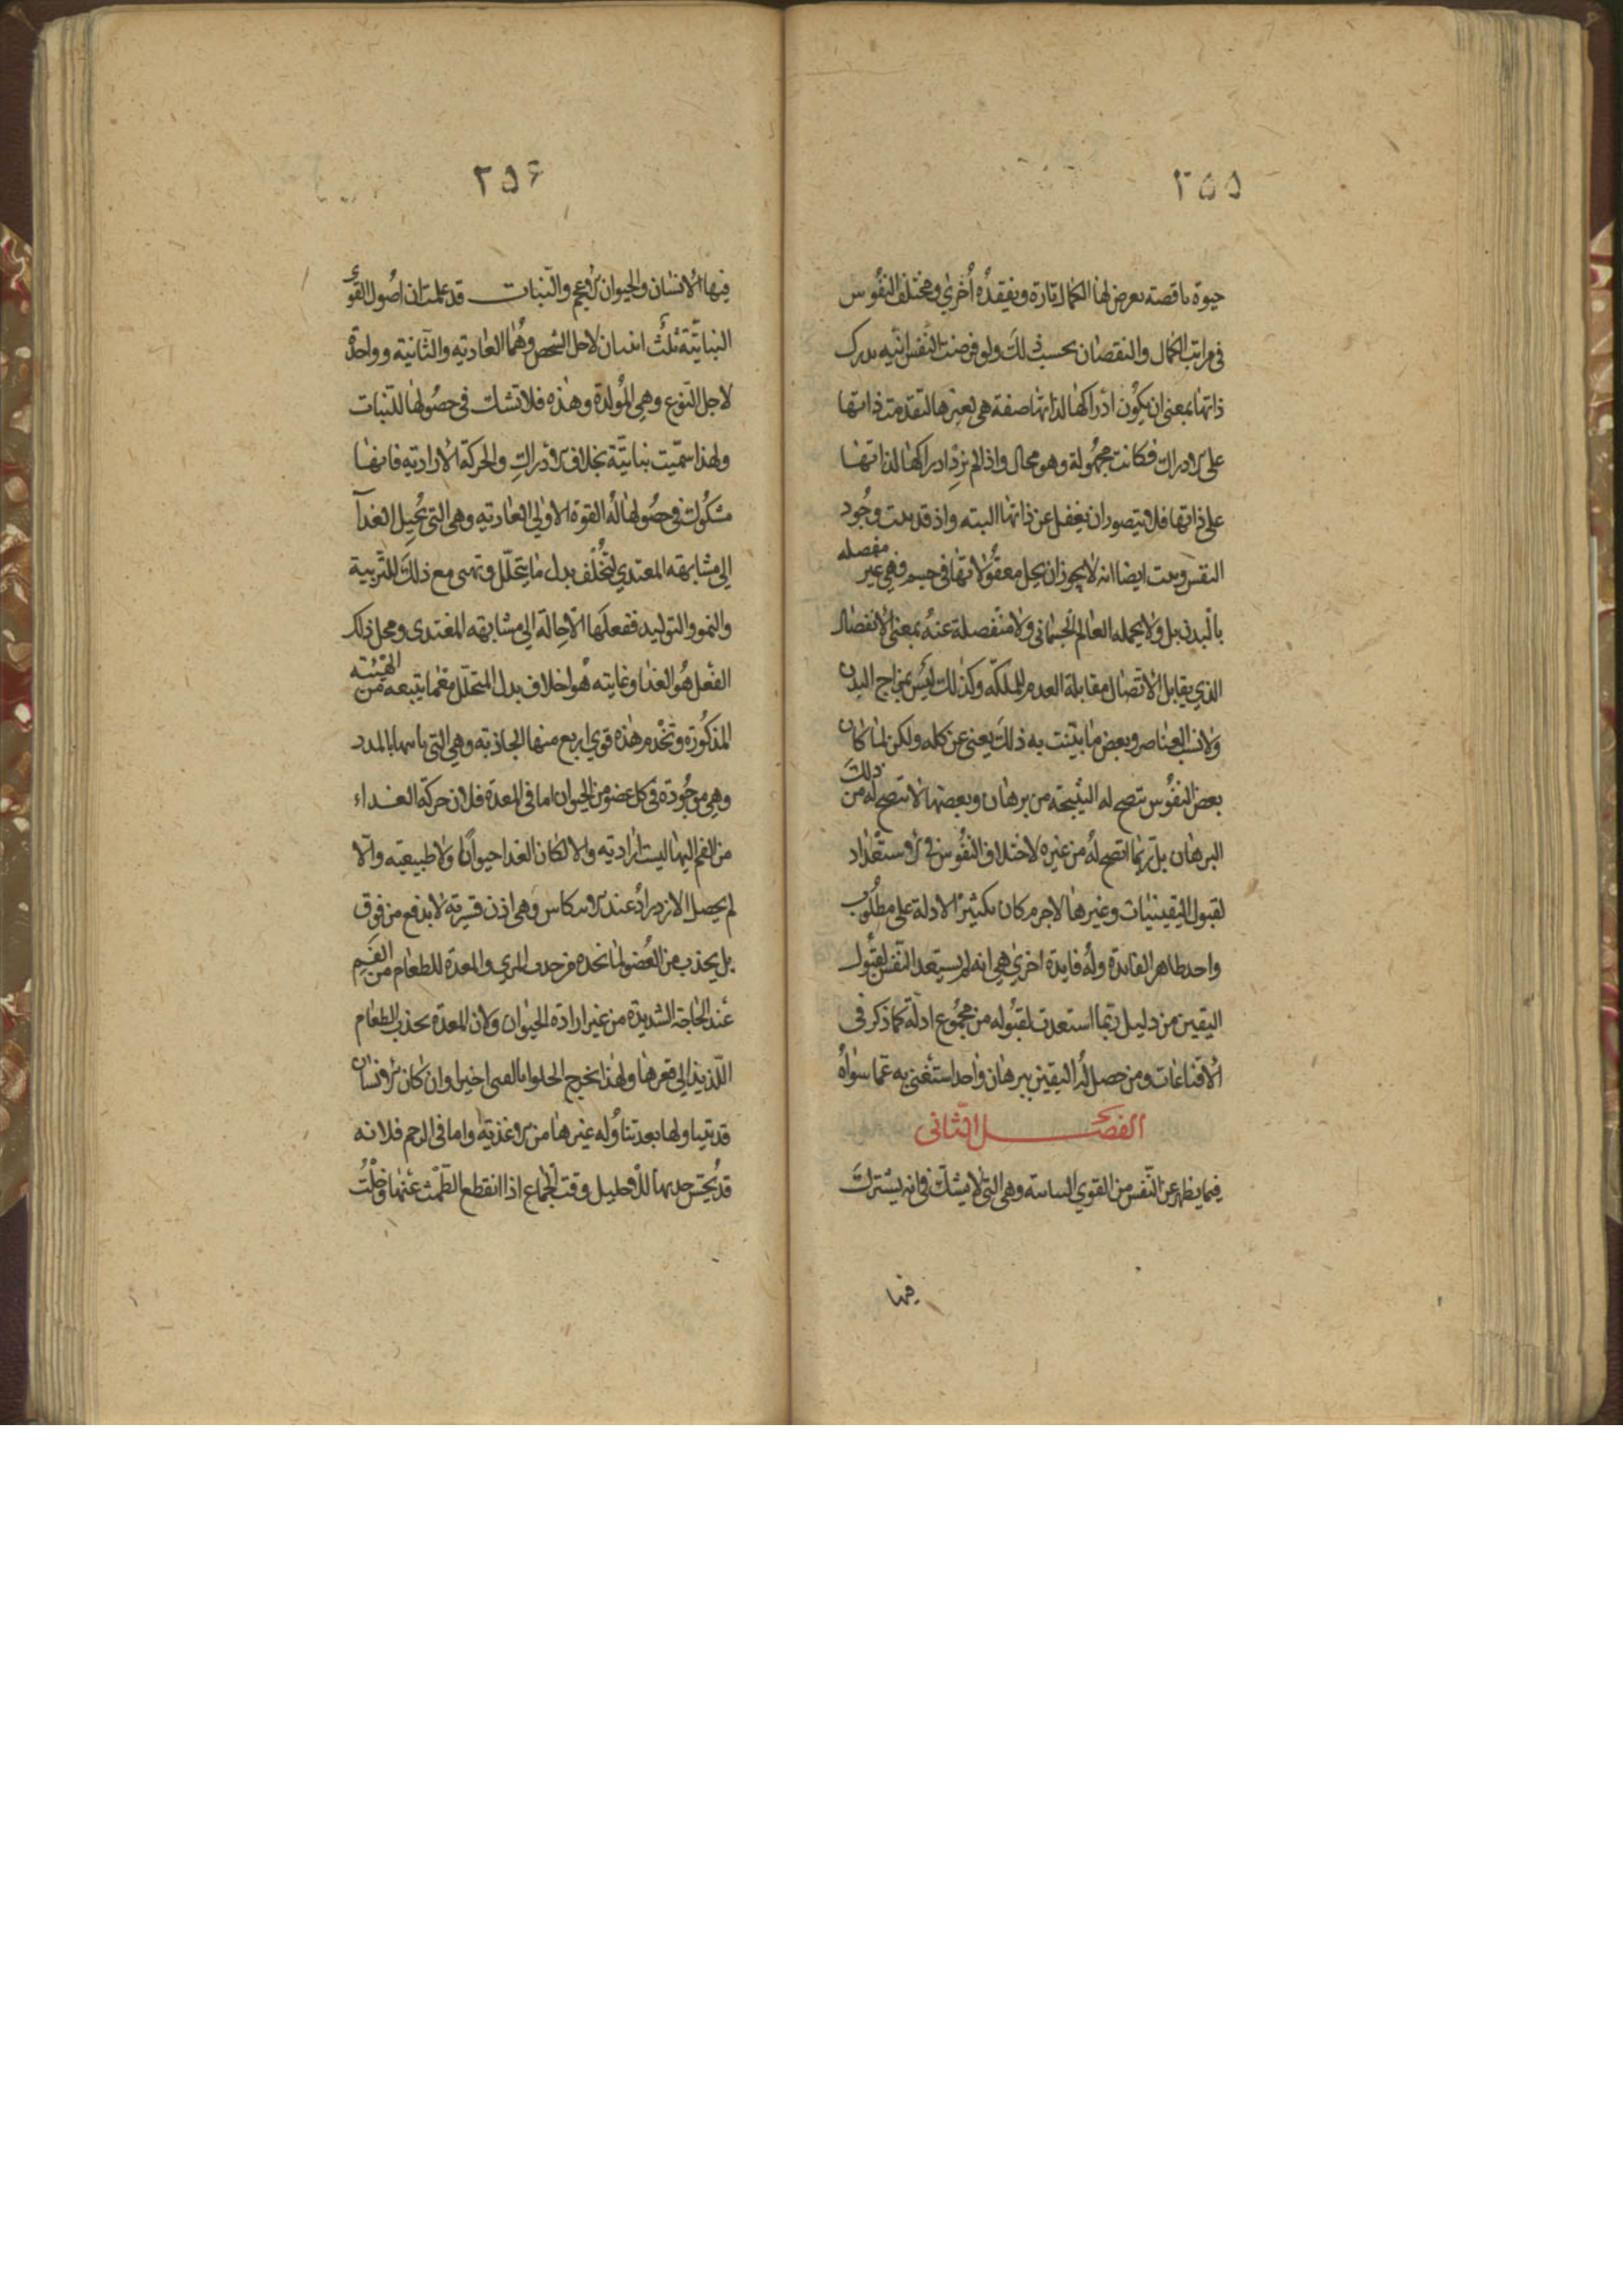 ٢٥٥
حيوة ناقصة يعرض لها الكمال تارة ويفقده أخري ومختلف النفوس
في مراتب الكمال والنقصان بحسب ذلك ولو فرضت النفس انيه يدرك
ذاتها بمعنى ان يكون ادراكها لذاتها صفة هي لغيرها لتقدمت ذاتها
على الادراك فكانت مجهولة وهو محال واذا لم يزد ادراكها لذاتها
على ذاتها فلا يتصور ان يغفل عن ذاتها البته واذ قد بينت وجود
النفس وبينت ايضا انه لا يجوز ان يحل معقولاتها في جسم فهي غير مفصله
بالبدن بل ولا بجمله العالم الجسماني ولا منفصلة عنه بمعنى الانفصال
الذي يقابل الاتصال مقابلة العدم للملكه وكذلك ليس بمزاج البدن
ولا نسب العناصر وبعض ما بينت به ذلك يغني عن كله ولكن لما كان
بعض النفوس تتضح له النتيجة من برهان وبعضها لا تتضح له من ذلك
البرهان بل ربما اتضح له من غيره لاختلاف النفوس في الاستعداد
لقبول اليقينيات وغيرها لاجرم كان تكثير الادلة على مطلوب
واحد ظاهر الفايدة وله فايدة اخري هي انه لم يستعد النفس لقبول
اليقين من دليل ربما استعدت لقبوله من مجموع ادلة كما ذكر في
الاقناعات ومن حصل له اليقين ببرهان واحد استغنى به عما سواه
الفصل الثاني
فيما يظهر عن النفس من القوي النباتية وهي التي لا يشك في انه يشترك
فيها
٢٥۶
فيها الانسان والحيوان الاعجم والنبات قد علمت ان اصول القوي
النباتية ثلث اثنان لاجل الشخص وهما الغاذية والثانية وواحدة
لاجل النوع وهي المولدة وهذه فلا تشك في حصولها للنبات
ولهذا سميت نباتية بخلاف الادراك والحركة الارادية فانها
مشكوك في حصولها له القوة الاولي الغاذية وهي التي تحيل الغذآ
الي مشابهة المغتذي لتخلف بدل ما يتحلل وتهيى مع ذلك للتربية
والنمو والتوليد ففعلها الاحالة الي مشابهه المغتدى ومحل ذلك
الفعل هو الغذا وغايته هو اخلاف بدل المتحلل مع ما يتبعه من التهيئة
المذكورة وتخدم هذه قوي اربع منها الجاذبة وهي التي تاتيها بالمدد
وهي موجودة في كل عضو من الحيوان اما في المعدة فلان حركة الغذاء
من الفم اليها ليست ارادية والا لكان الغذا حيوانا ولا طبيعيه والا
لم يحصل الازدراد عند الانتكاس وهي اذن قسرية لا بدفع من فوق
بل بجذب من العضو لما نجده من جذب المري والمعدة للطعام من الفم
عند الحاجة الشديدة من غير ارادة الحيوان ولان المعدة بجذب الطعام
اللذيذ الي قعرها ولهذا يخرج الحلوا بالقيى اخيرا وان كان الانسان
قد تناولها بعد تناوله غيرها من الاغذية واما في الرحم فلانه
قد يحس جذبها للاحليل وقت الجماع اذا انقطع الطمث عنها وخلت